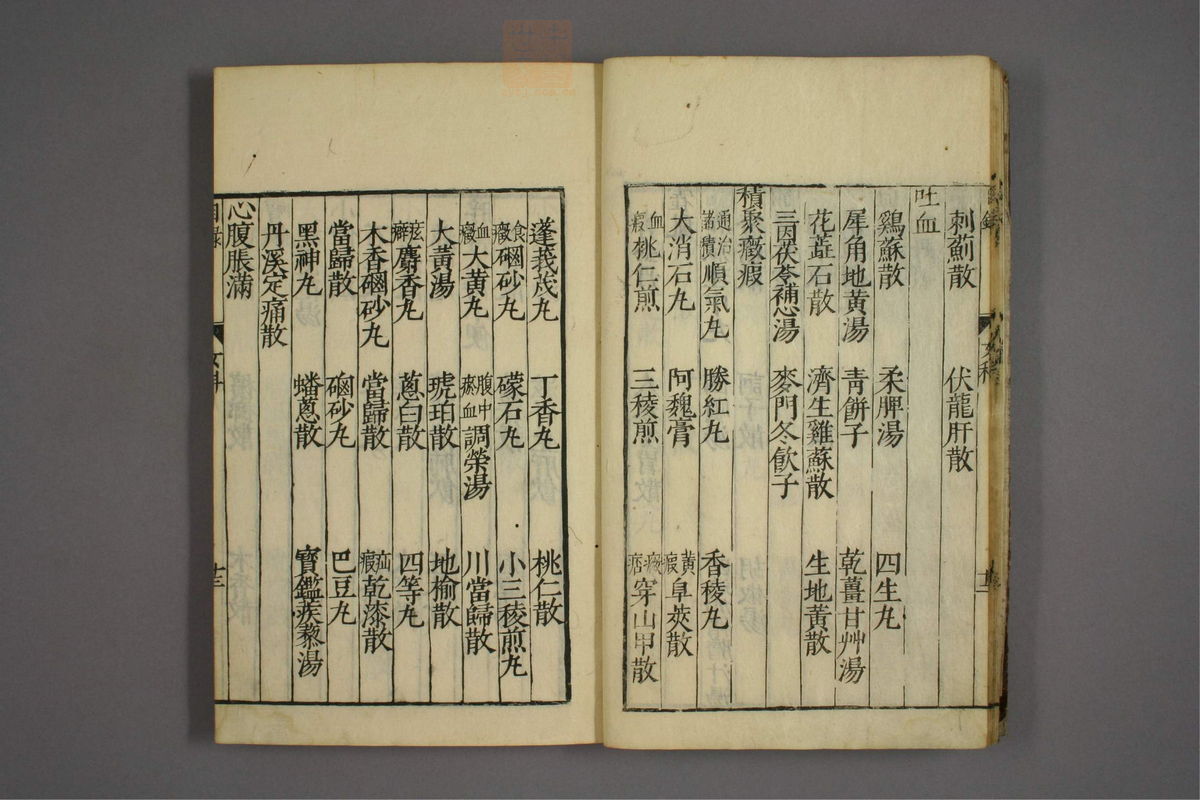 刺薊散 伏龍肝散
吐血
鷄蘇散 柔脾湯 四生丸
犀角地黄湯 青餅子 乾薑甘艸湯
花蕋石散 濟生雞蘇散 生地黃散
三因茯苓補心湯 麥門冬飲子
積聚癥瘕
通治諸積順氣丸 勝紅丸 香稜丸
大消石丸 阿魏膏 黄瘕阜莢散
血瘕桃仁煎 三稜煎 痃痞穿山甲散
蓬莪茂丸 丁香丸 桃仁散
食癥硇砂丸 礞石丸 小三稜煎丸
血癥大黄丸 腹中瘀血調榮湯 川當歸散
大黃湯 琥珀散 地榆散
痃癖麝香丸 蔥白散 四等丸
木香硇砂丸 當歸散 疝瘕乾漆散
當歸散 硇砂丸 巴豆丸
黑神丸 蟠蔥散 寶鑑蒺藜湯
丹溪定痛散
心腹脹滿
目錄 女科 十三